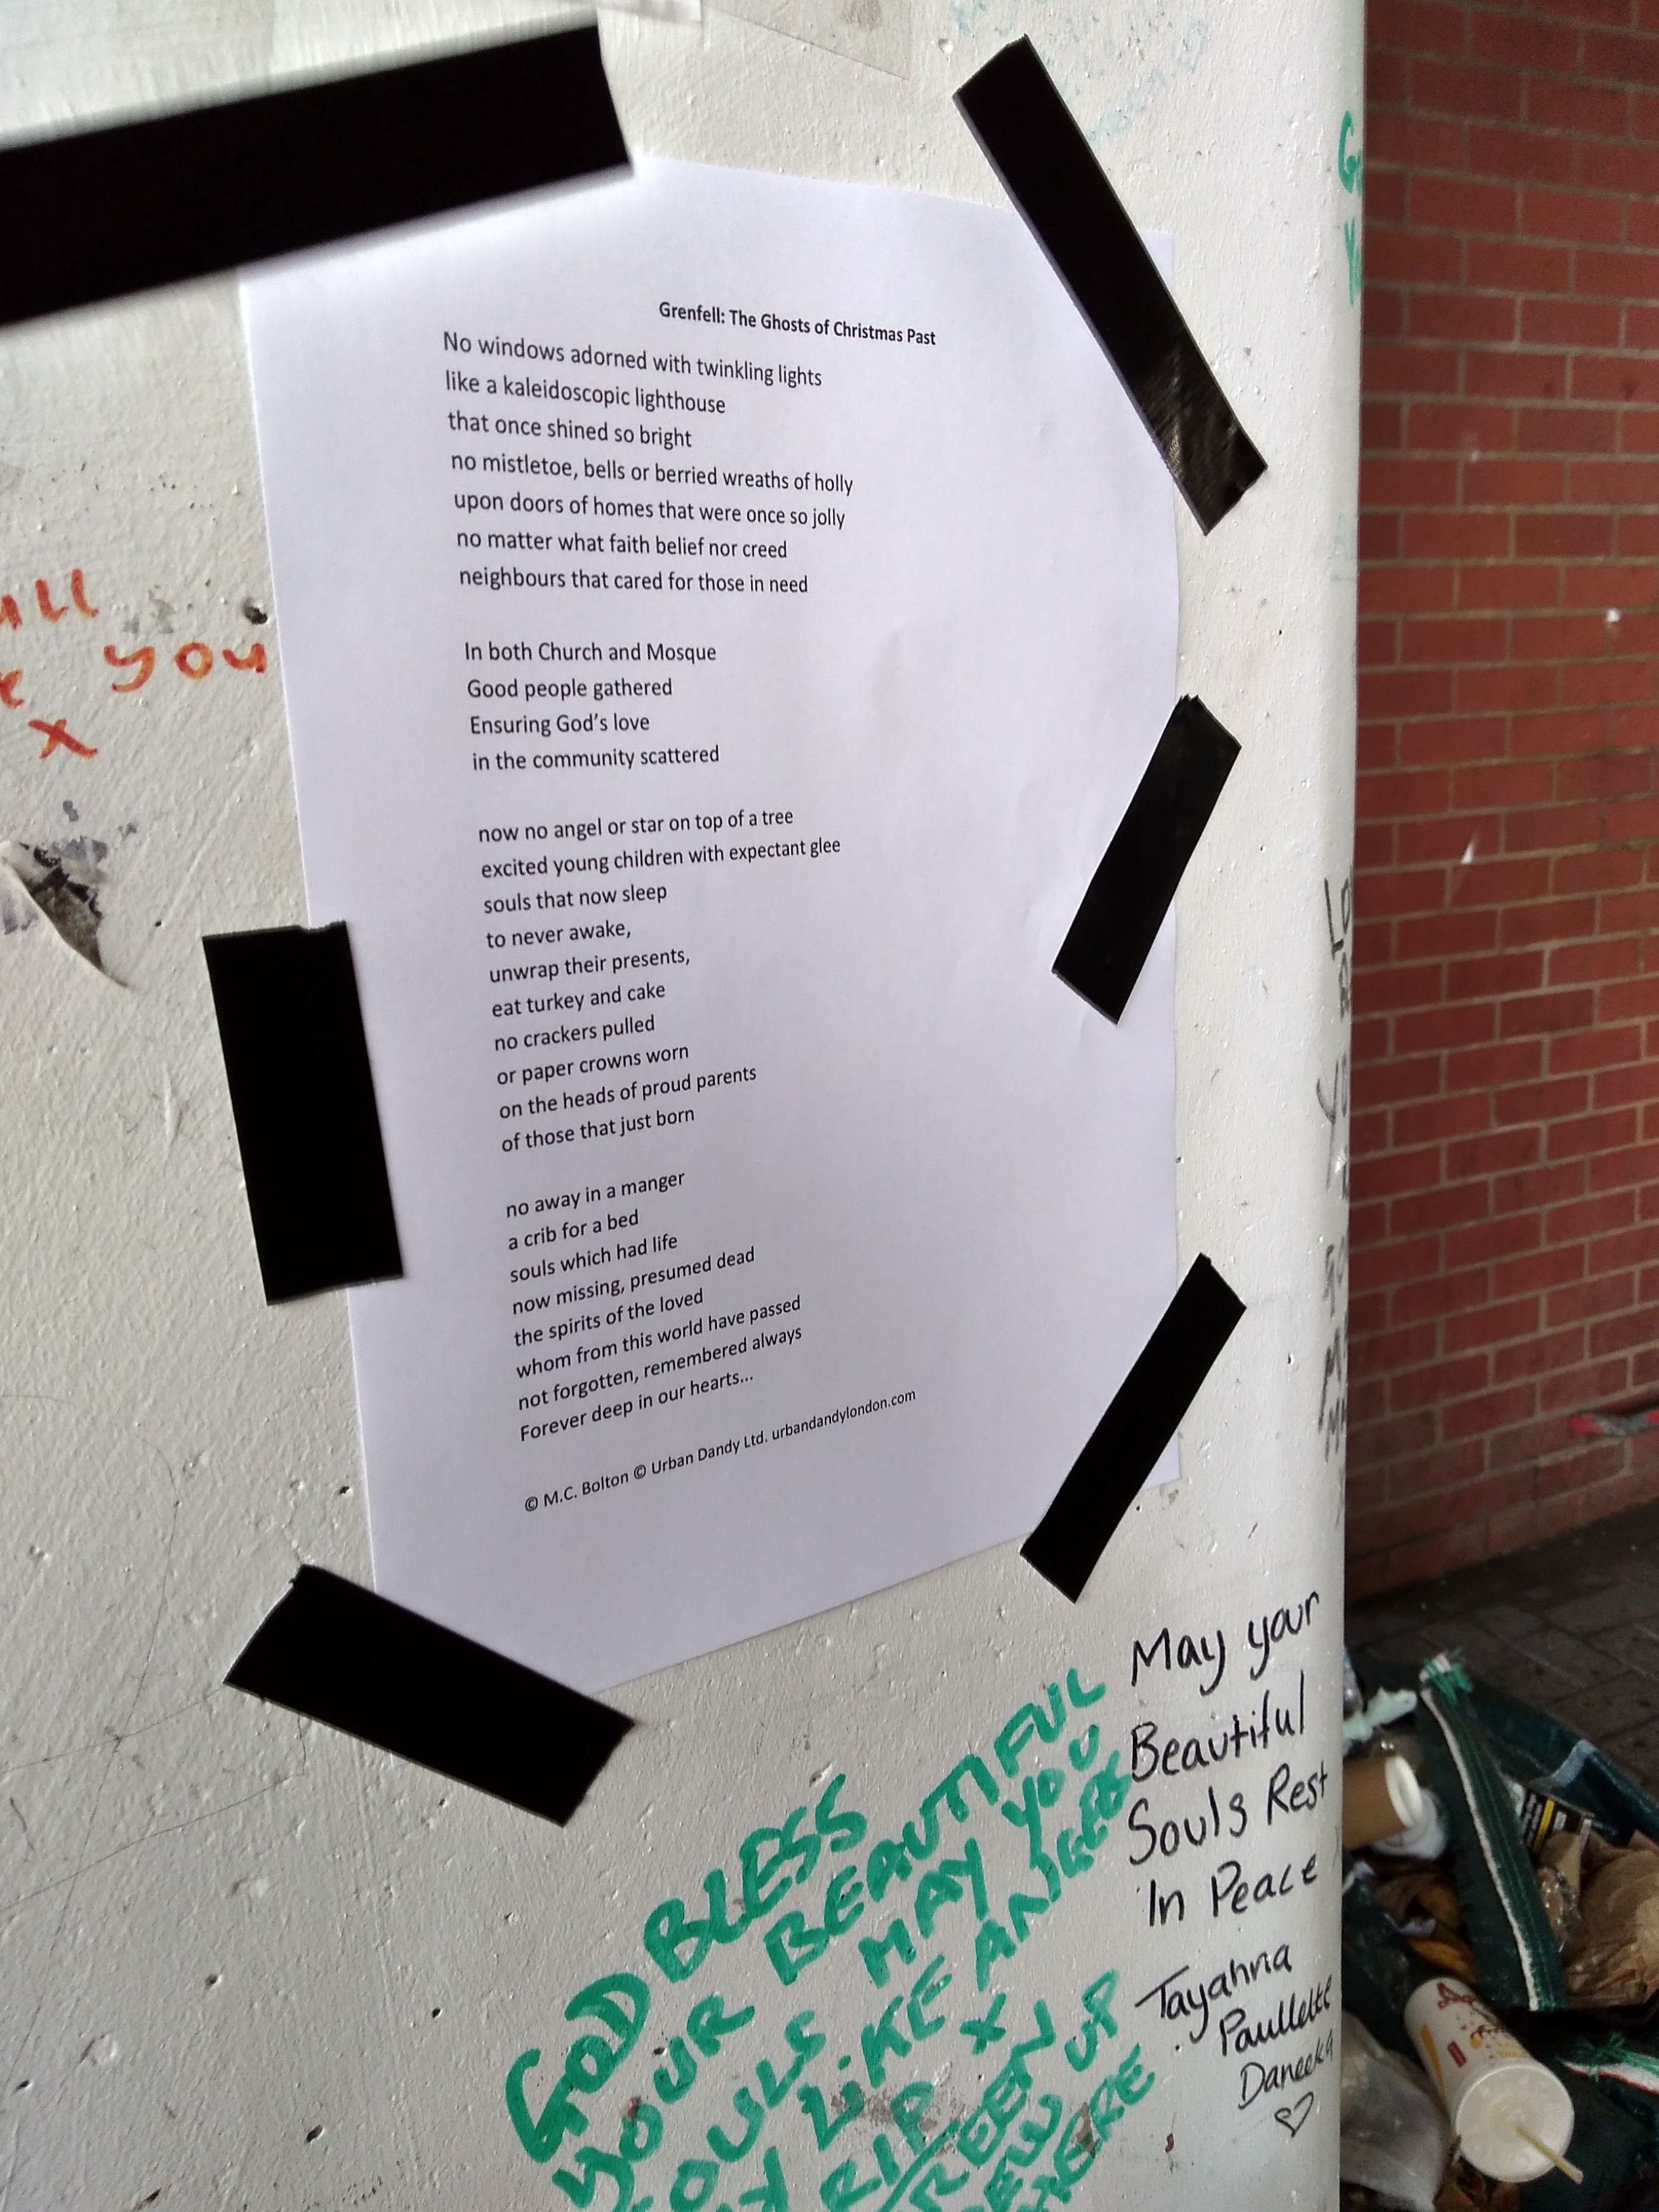 Grenfell: The Ghosts of Christmas Past
No windows adorned with twinkling lights
like a kaleidoscopic lighthouse
that once shined so bright
no mistletoe, bells or berried wreaths of holly
upon doors of homes that were once so jolly
no matter what faith belief nor creed
neighbours that cared for those in need
In both Church and Mosque
Good people gathered
Ensuring God's love
in the community scattered
now no angel or star on top of a tree
excited young children with expectant glee
souls that now sleep
to never awake,
unwrap their presents,
eat turkey and cake
no crackers pulled
or paper crowns worn
on the heads of proud parents
of those that just born
no away in a manger
a crib for a bed
souls which had life
now missing, presumed dead
the spirits of the loved
whom from this world have passed
not forgotten, remembered always
Forever deep in our hearts...
© M.C. Bolton © Urban Dandy Ltd. urbandandylondon.com
you
x
GOD BLESS
YOUR BEAUTIFUL
SOULS MAY YOU
LIKE ANGELS
RIP X
UP
HERE
May your
Beautiful
Souls Rest
In Peace
Tayahna
Paullette
Daneeka